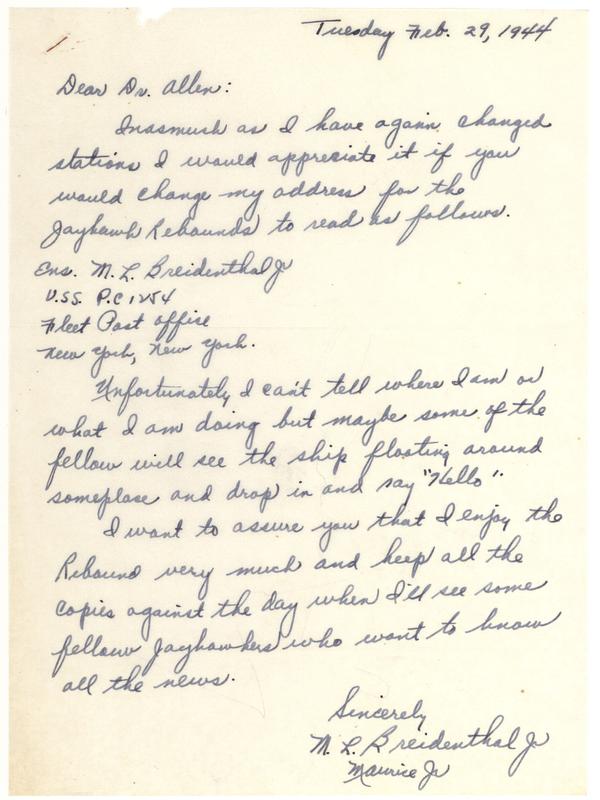 Tuesday Feb. 29, 1944
Dear Dr. Allen:
Inasmush as I have again changed
stations I would appreciate it if you
would change my address for the
Jayhawk Rebounds to read as follows.
Ens. M. L. Breidenthal Jr
U.S.S. P.C 1254
Fleet Post office
New York, New York.
Unfortunately I can't tell where I am or
what I am doing but maybe some of the
fellow will see the ship floating around
someplace and drop in and say "Hello".
I want to assure you that I enjoy the
Rebound very much and keep all the
copies against the day when I'll see some
fellow Jayhawkers who want to know
all the news.
Sincerely
M. L. Breidenthal Jr
Maurice Jr